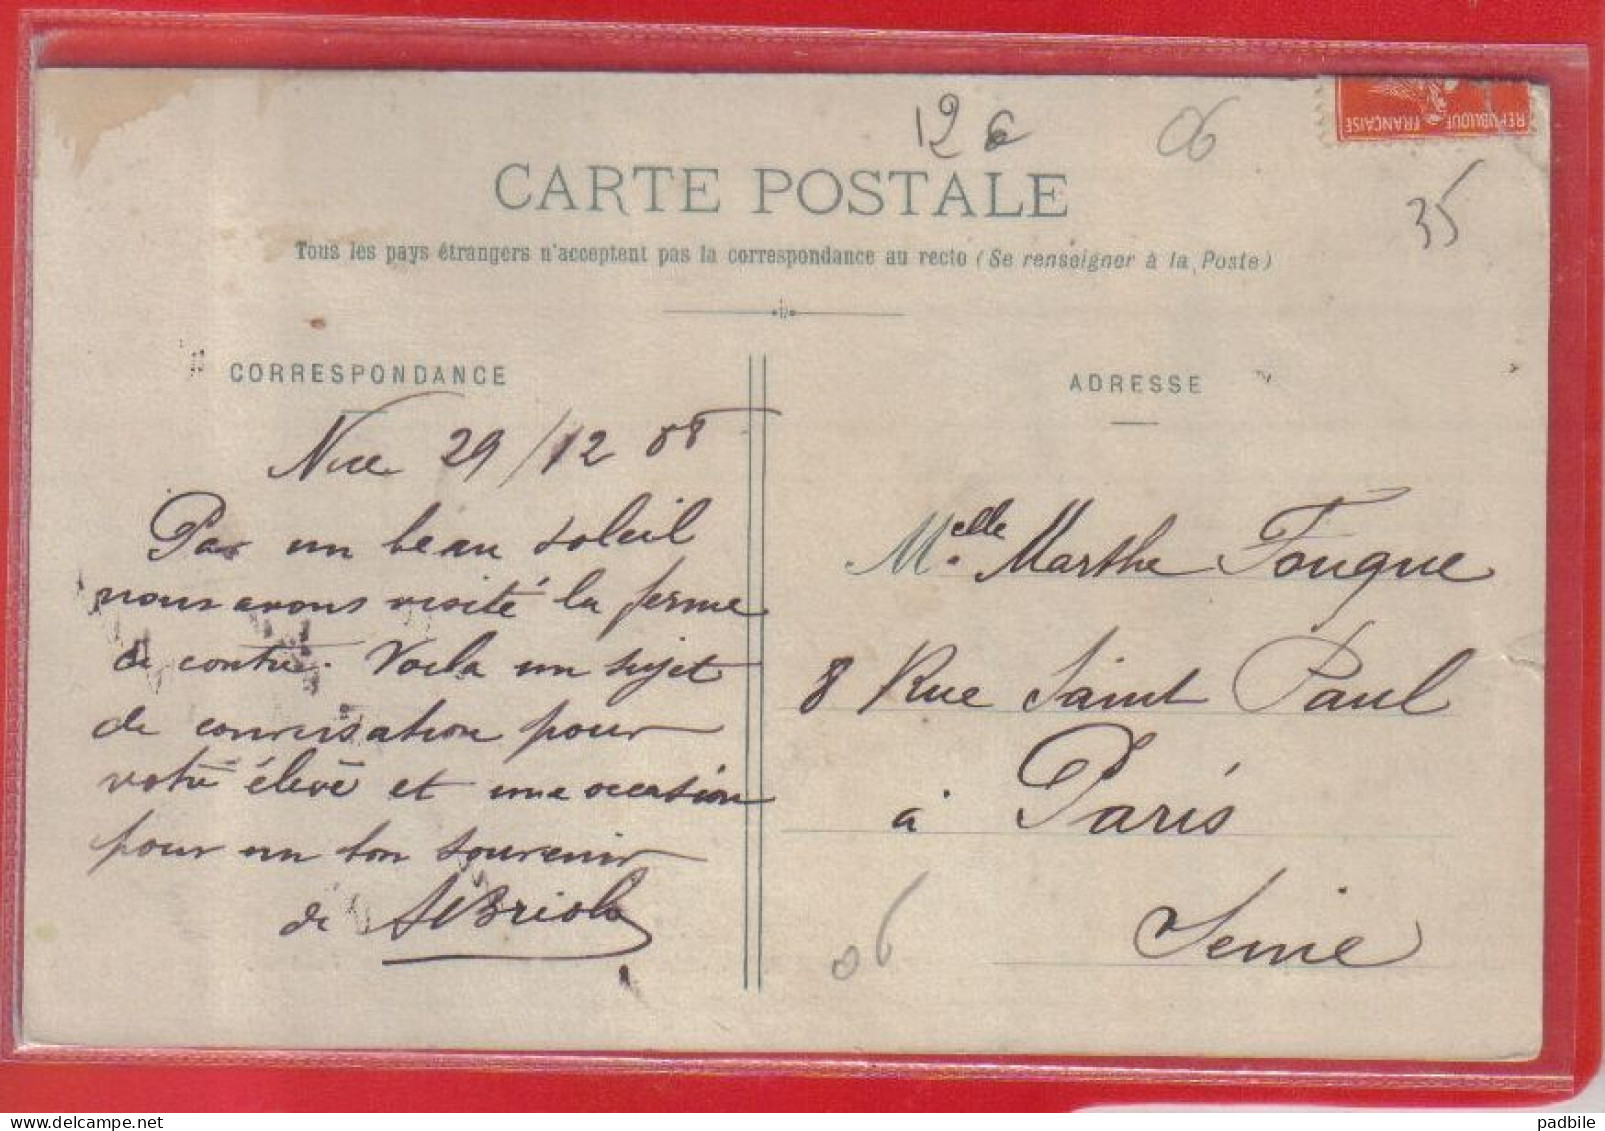 12 6
06
REPUBLIQUE FRANÇAISE
35
CARTE POSTALE
Tous les pays étrangers n'acceptent pas la correspondance au recto (Se renseigner à la Poste)
CORRESPONDANCE
Nice 29/12 08
Par un beau soleil
nous avons visité la ferme
de contre. Voila un sujet
de conversation pour
votre élève et une occasion
pour un bon souvenir
de
ADRESSE
Melle Marthe Fouque
8 Rue Saint Paul
à Paris
Seine
06
padbile